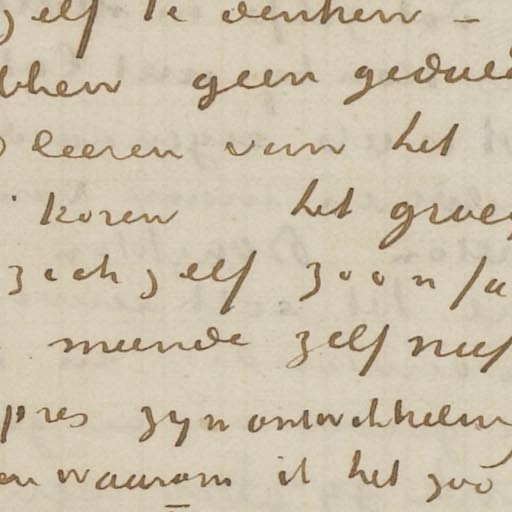 zelf te denken –
bben geen geduld
leeren van het
koren het groei
zichzelf zoon
meende zelf
pres zyn ontwikkeling
waarom ik het zoo